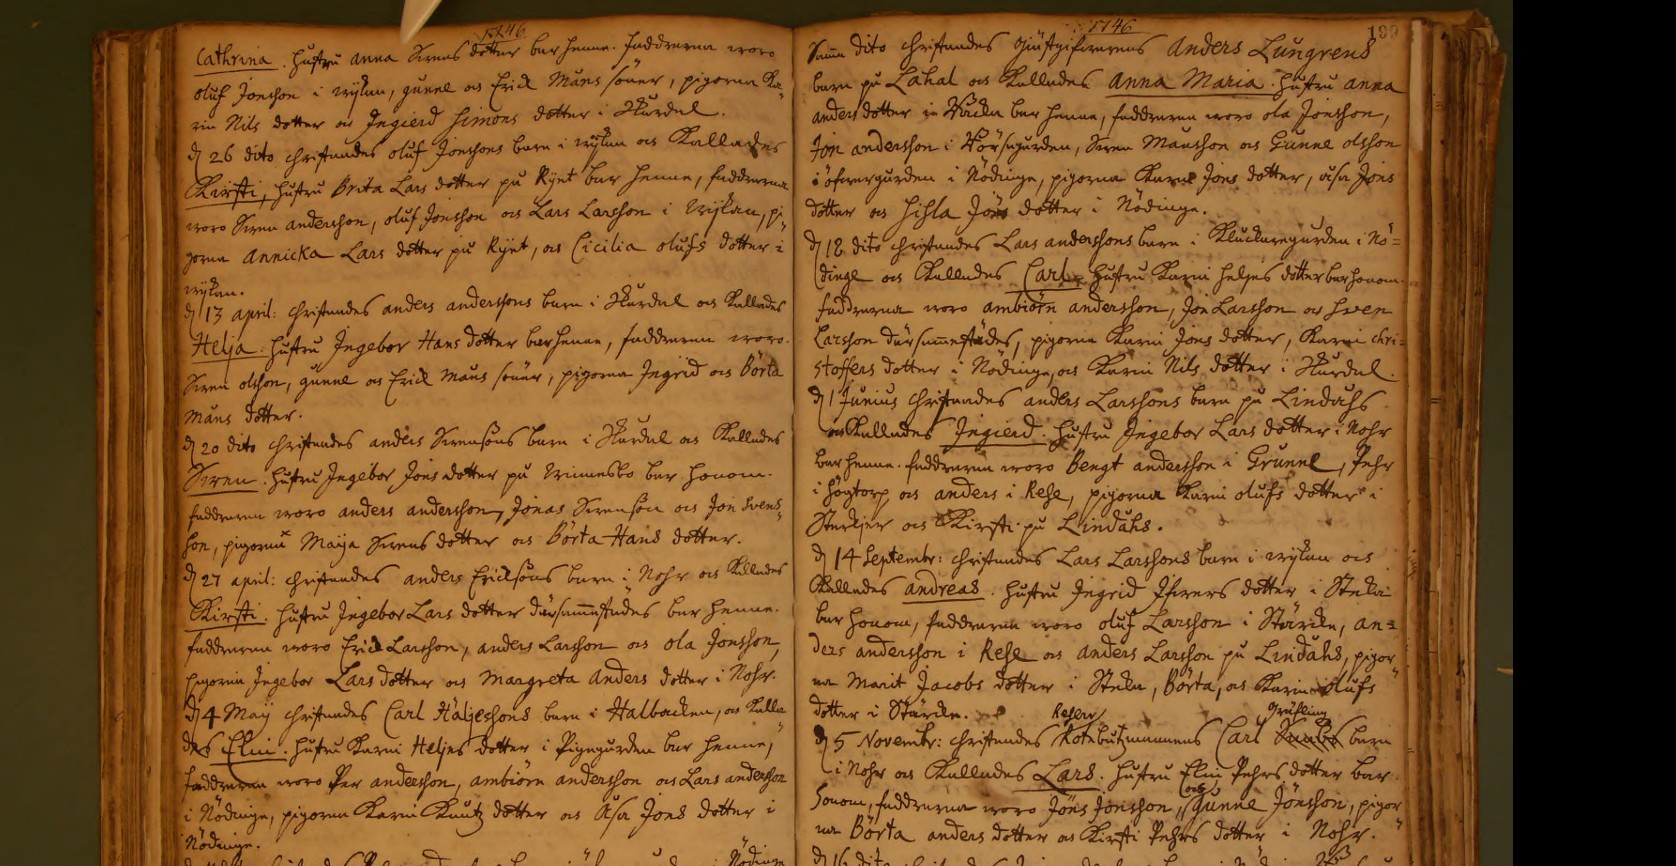 1746
Cathrina. Hustru anna Swens dotter bar henne. Faddrarna woro
oluf Jonsson i wijkan, gunne och Erick Måns söner, pigorna Ka=
rin Nils dotter och Ingierd Simons dotter i Skårdal.
d 26 dito christnades oluf Jonssons barn i wijkan och Kallades
Kirsti, hustru Brita Lars dotter på Ryet bar henne, faddrarna
woro Swen andersson, oluf Jonsson och Lars Larsson i Wijkan, pi=
gorna annicka Lars dotter på Ryet, och Cicilia olufs dotter i
wijkan.
d 13 april: christnades anders anderssons barn i Skårdal och Kallades
Helja. Hustru Ingebor Hans dotter bar henne, faddrarna woro
Swen olsson, gunne och Erick Måns söner, pigorna Ingrid och Börta
Måns dotter.
d 20 dito christnades anders Swensons barn i Skårdal och Kallades
Swen. Hustru Ingebor Jons dotter på Winnesbo bar honom.
faddrarna woro anders andersson, Jonas Swenson och Jon Svens=
son, pigorna Maija Swens dotter och Börta Hans dotter.
d 27 april: christnades anders Ericksons barn i Nohr och Kallades
Kirsti. Hustru Ingebor Lars dotter därsammastädes bar henne.
faddrarna woro Erick Larsson, anders Larsson och ola Jonsson,
pigorna Ingebor Lars dotter och Margreta anders dotter i Nohr.
d 4 Maij christnades Carl Häljessons barn i Halbacken, och Kalla=
des Elin. Hustru Karin Heljes dotter i Pigegården bar henne,
faddrarna woro Per andersson, ambiörn andersson och Lars andersson
i Nödinge, pigorna Karin Knutz dotter och Åsa Jons dotter i
Nödinge.
1746
199
Samma dito christnades Giästgifwarens Anders Lungrens
barn på Lahal och Kallades Anna Maria. Hustru anna
anders dotter i bar henne, faddrarna woro ola Jonsson,
Jon andersson i Swen Månsson och Gunne olsson
i öfwergården i Nödinge, pigorna Karin Jons dotter, åsa Jons
dotter och Sissla Jöns dotter i Nödinge.
d 18 dito christnades Lars anderssons barn i Klåckaregården i Nö=
dinge och Kallades Carl. Hustru Karin heljes dotter bar honom.
faddrarna woro ambiörn andersson, Jon Larsson och Swen
Larsson därsammastädes, pigorna Karin Jons dotter, Karin chri=
stoffers dotter i Nödinge, och Karin Nils dotter i Skårdal.
d 1 Junius christnades anders Larssons barn på Lindåhs
och Kallades Ingierd. Hustru Ingebor Lars dotter i Nohr
bar henne. faddrarna woro Bengt andersson i Grunne, Pehr
i Högtorp och anders i Rese, pigorna Karin olufs dotter i
och Kirsti på Lindåhs.
d 14 Septembr: christnades Lars Larssons barn i wijkan och
Kallades andreas. Hustru Ingrid dotter i
bar honom, faddrarna woro oluf Larsson i Stärcke, an=
ders andersson i Rese och anders Larsson på Lindåhs, pigor
na Marit Jacobs dotter i Börta, och Karin olufs
dotter i Stärcke.
d 5 Novembr: christnades Carl barn
i Nohr och Kallades Lars. Hustru Elin Pehrs dotter bar
honom, faddrarna woro Jöns Jönsson, och Gunne Jönsson, pigor
na Börta anders dotter och Kirsti Pehrs dotter i Nohr.